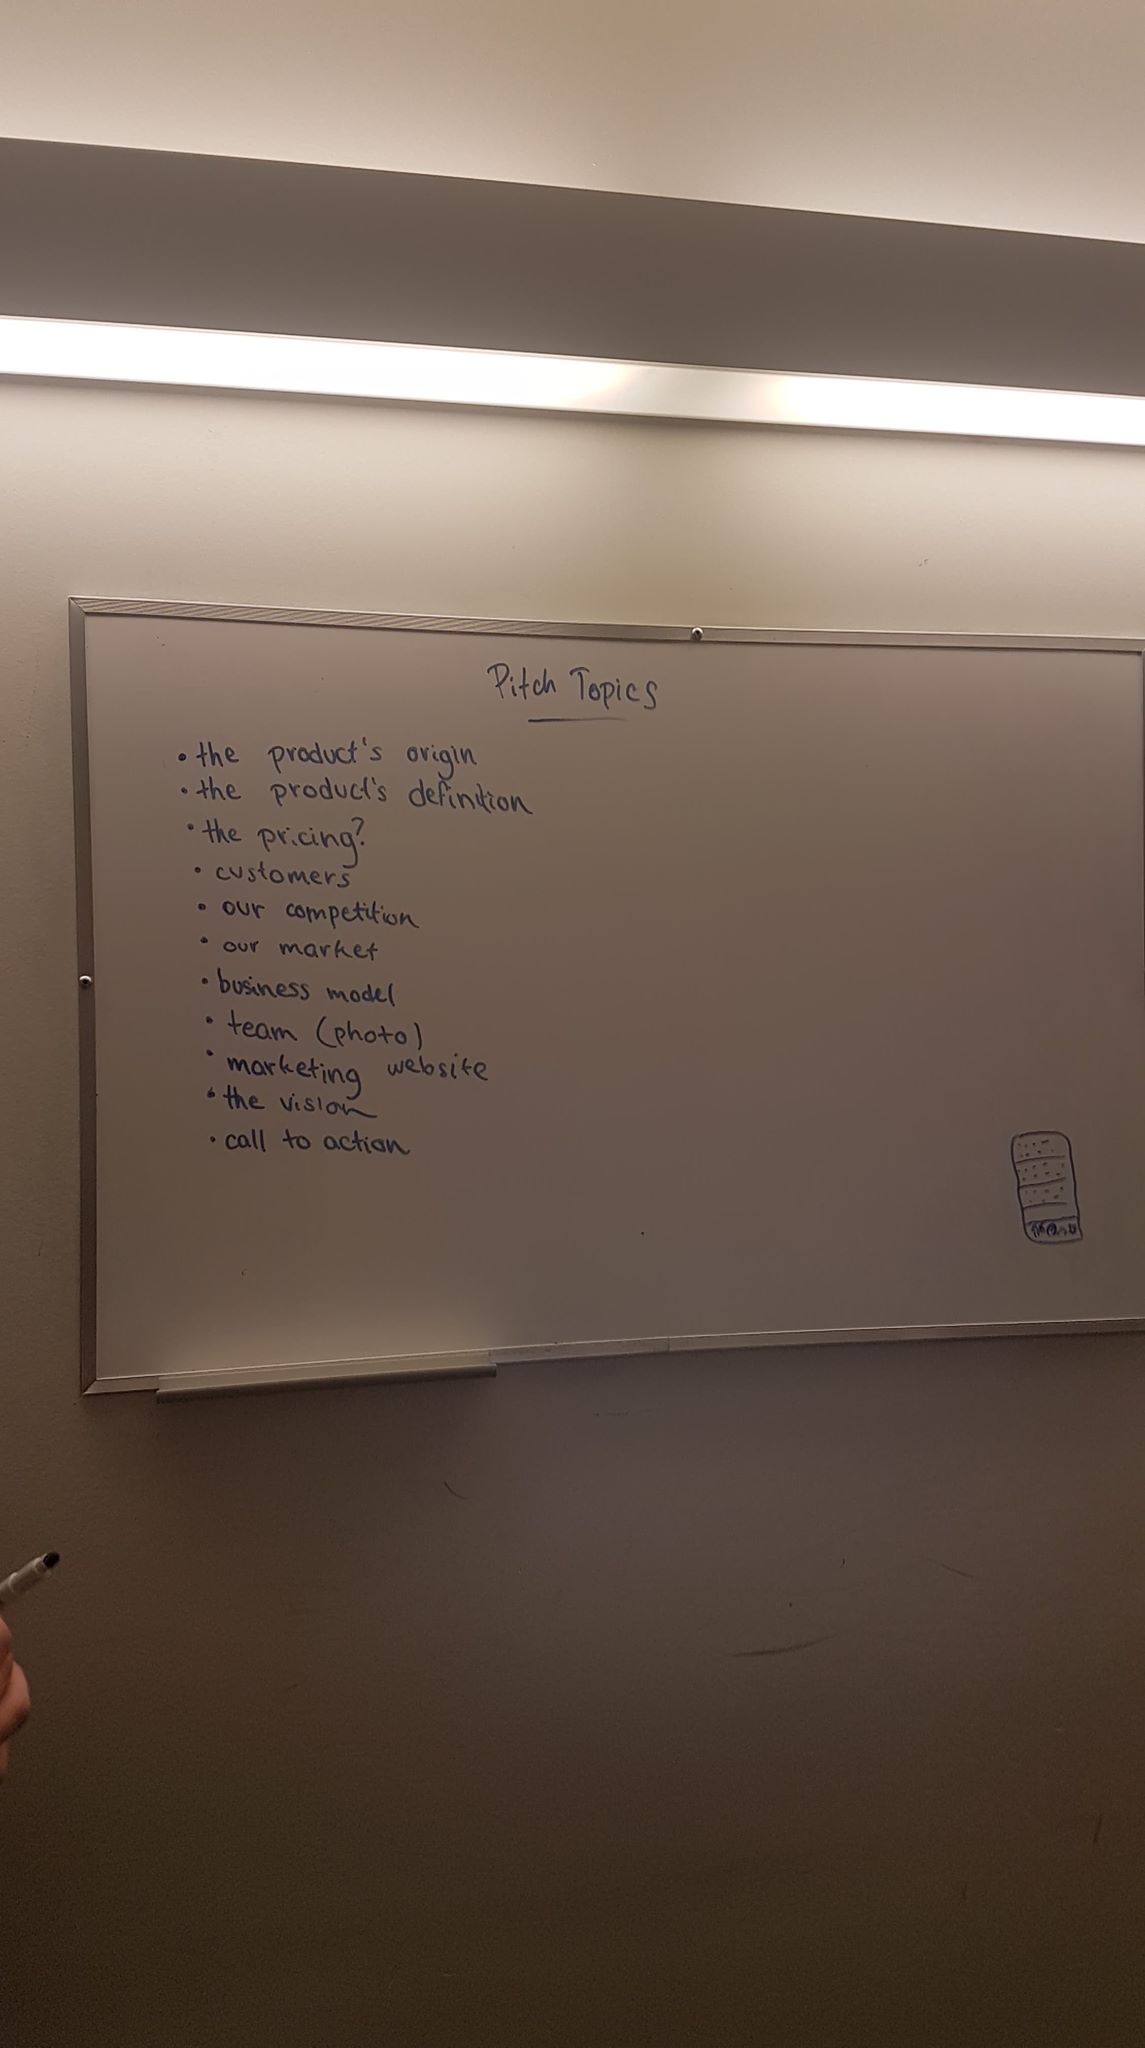 Pitch Topics
• the product's origin
• the product's definition
• the pricing?
• customers
• our competition
• our market
• business model
• team (photo)
• marketing website
• the vision
• call to action